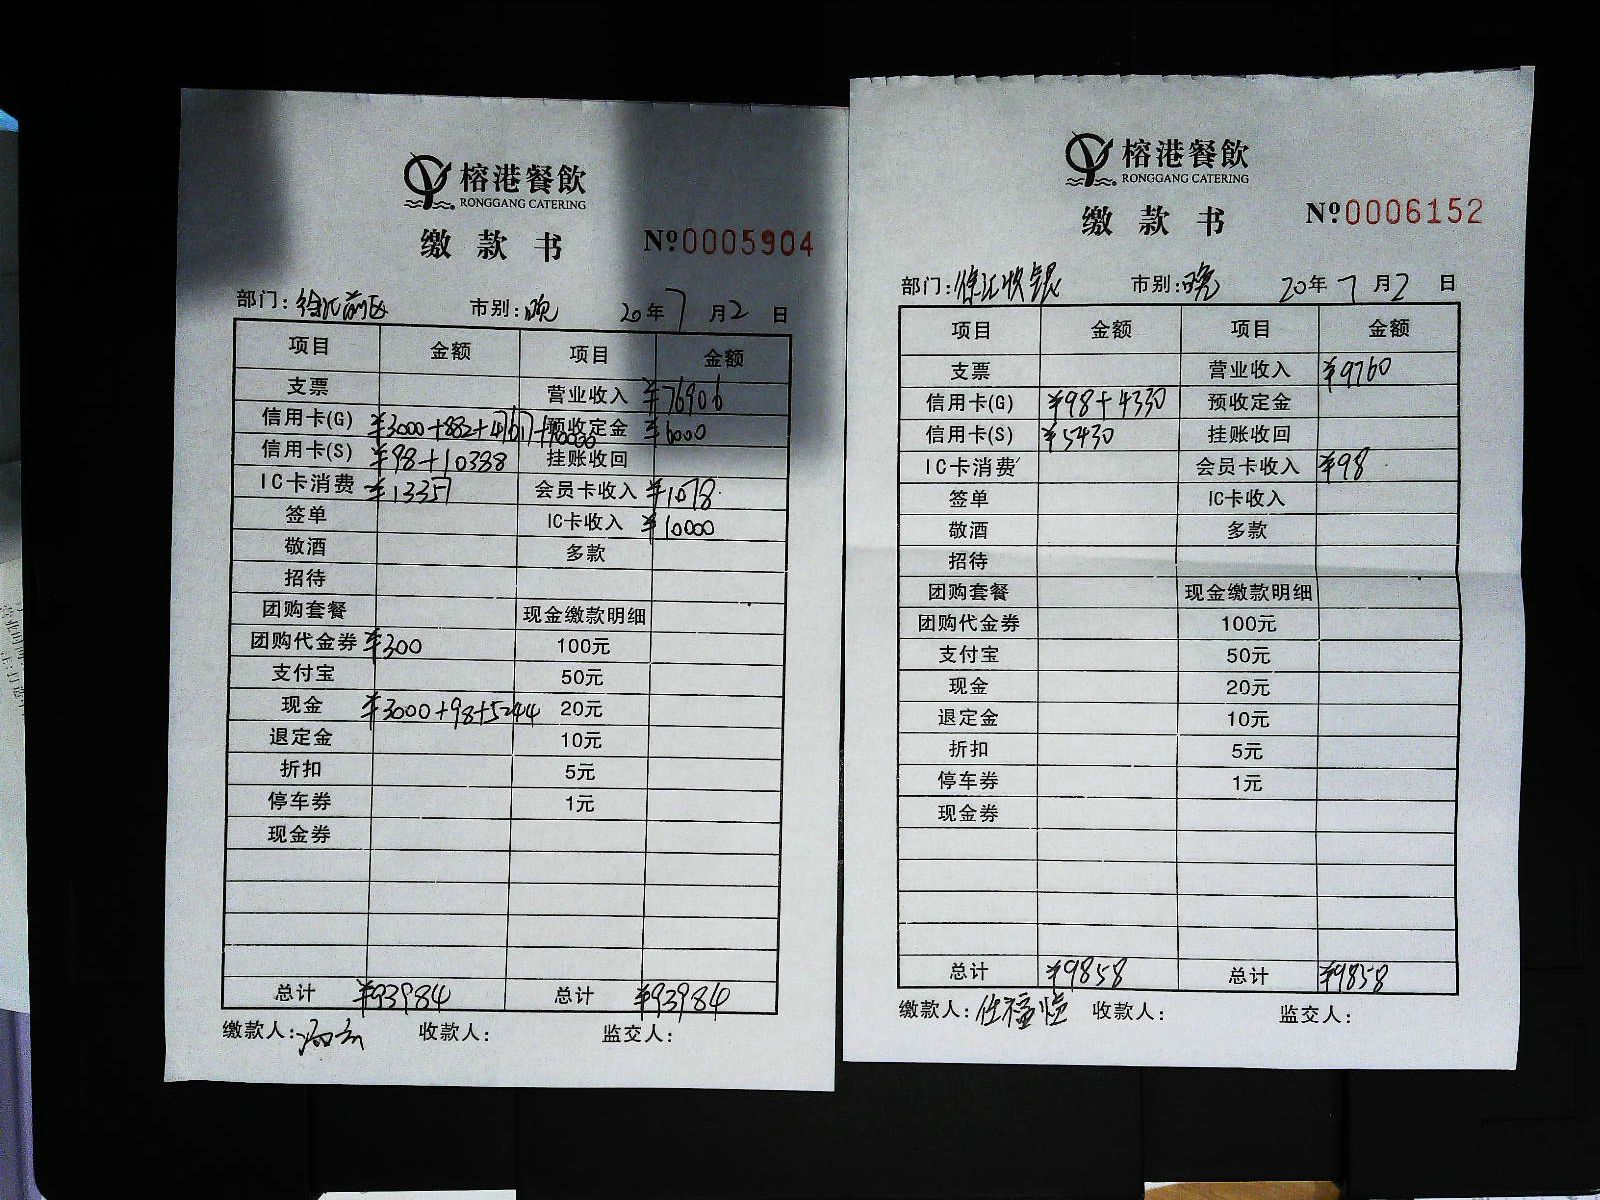 榕港餐飲
RONGGANG CATERING
缴款书
№0005904
部门:徐汇前区 市别:晚 20年7月2日
项目 金额 项目 金额
支票 营业收入 ¥76906
信用卡(G) ¥3000+882+47617+10000 预收定金 ¥6000
信用卡(S) ¥98+10388 挂账收回
IC卡消费 ¥13357 会员卡收入 ¥1078
签单 IC卡收入 ¥10000
敬酒 多款
招待
团购套餐 现金缴款明细
团购代金券 ¥300 100元
支付宝 50元
现金 ¥3000+98+5244 20元
退定金 10元
折扣 5元
停车券 1元
现金券
总计 ¥93984 总计 ¥93984
缴款人: 收款人: 监交人:
榕港餐飲
RONGGANG CATERING
缴款书
№0006152
部门:徐汇收银 市别:晚 20年7月2日
项目 金额 项目 金额
支票 营业收入 ¥9760
信用卡(G) ¥98+4330 预收定金
信用卡(S) ¥5430 挂账收回
IC卡消费 会员卡收入 ¥98
签单 IC卡收入
敬酒 多款
招待
团购套餐 现金缴款明细
团购代金券 100元
支付宝 50元
现金 20元
退定金 10元
折扣 5元
停车券 1元
现金券
总计 ¥9858 总计 ¥9858
缴款人: 收款人: 监交人: